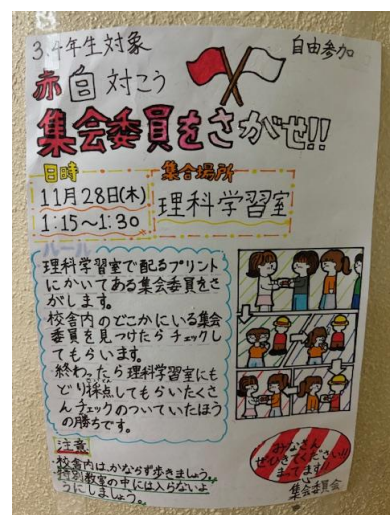 3,4年生対象
自由参加
赤白対こう
集会委員をさがせ!!
日時
11月28日(木)
1:15~1:30
集合場所
理科学習室
ルール
・理科学習室で配るプリント
にかいてある集会委員をさ
がします。
・校舎内のどこかにいる集会
委員を見つけたらチェックし
てもらいます。
・終わったら理科学習室にも
どり採点してもらいたくさ
んチェックのついていたほう
の勝ちです。
注意
・校舎内は、かならず歩きましょう。
・特別教室の中には入らないよ
うにしましょう。
みなさん
ぜひきてください!!
まってます!!
集会委員会